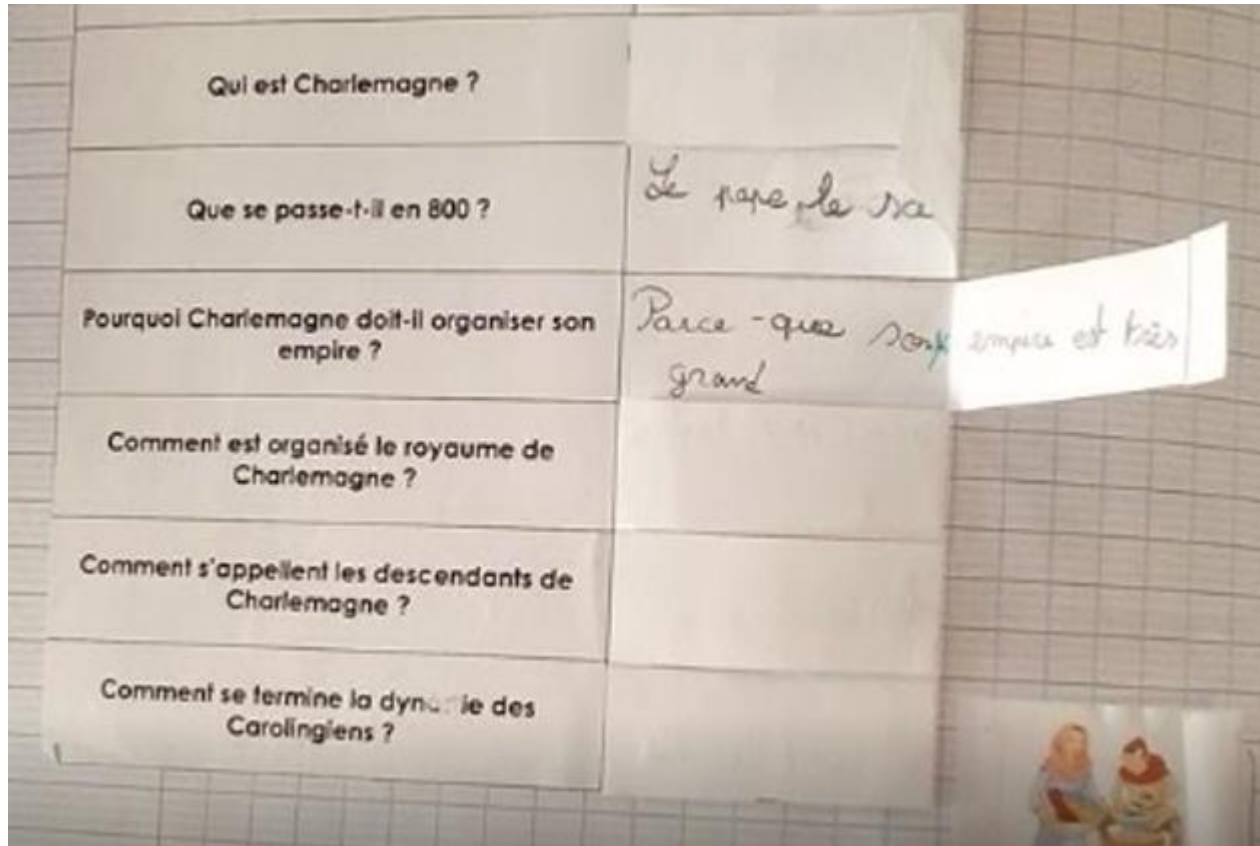 Qui est Charlemagne ?
Que se passe-t-il en 800 ?
Le pape le sa
Pourquoi Charlemagne doit-il organiser son
empire ?
Parce-que son empire est très
grand
Comment est organisé le royaume de
Charlemagne ?
Comment s'appellent les descendants de
Charlemagne ?
Comment se termine la dynastie des
Carolingiens ?